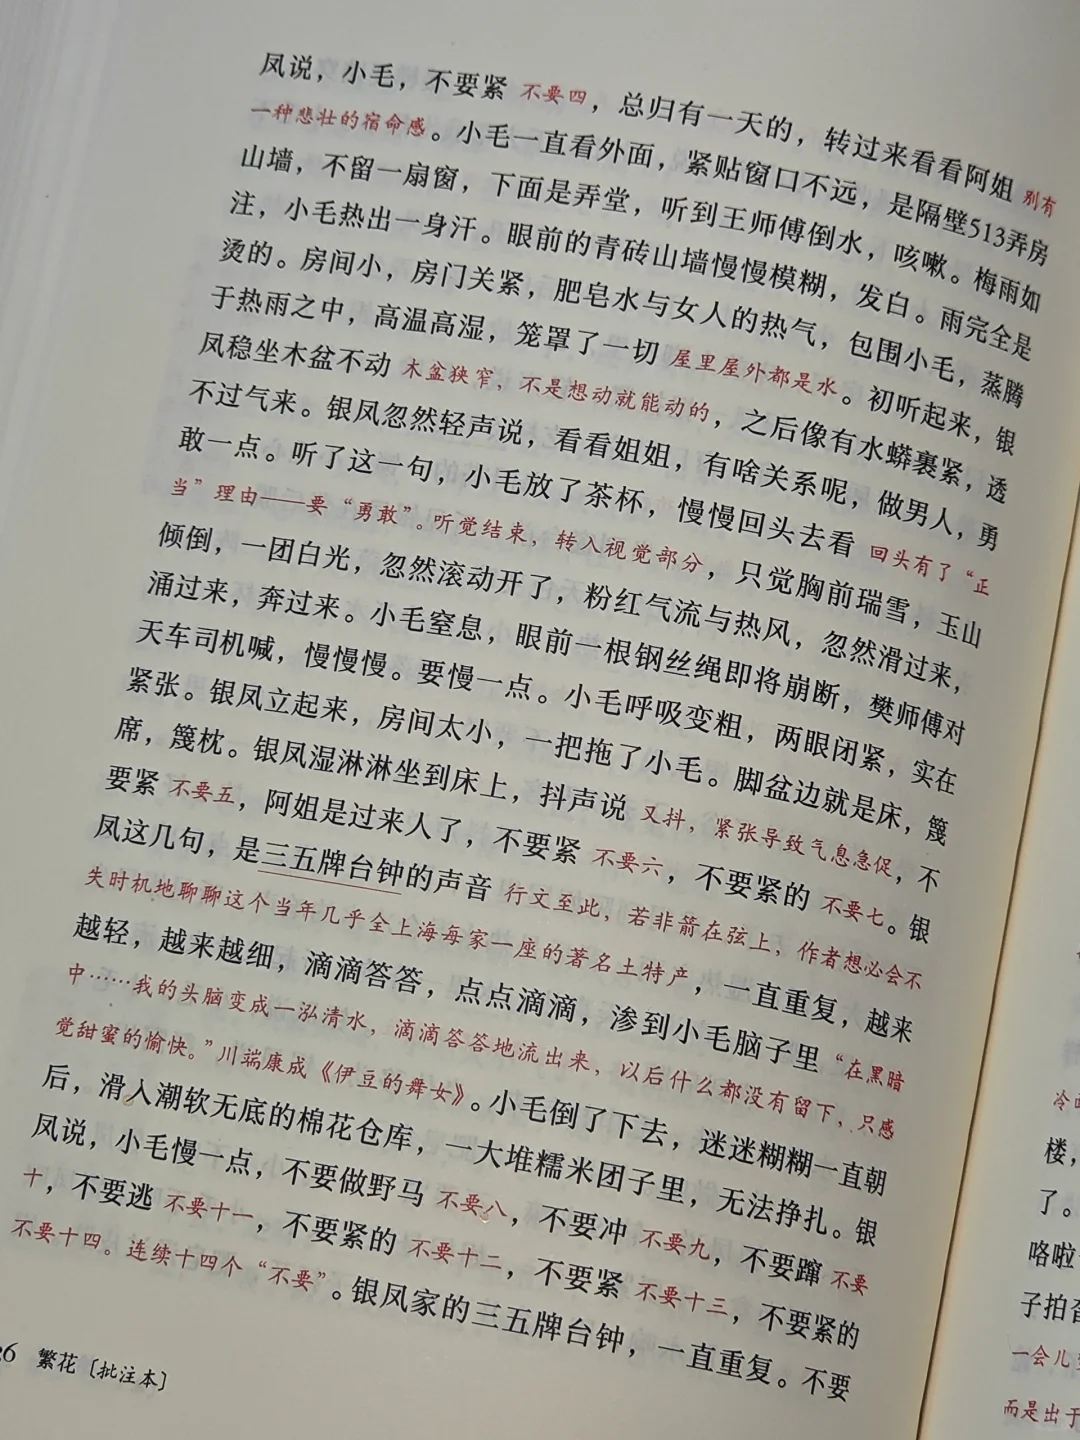 凤说，小毛，不要紧 不要四，总归有一天的，转过来看看阿姐 别有
一种悲壮的宿命感。小毛一直看外面，紧贴窗口不远，是隔壁513弄房
山墙，不留一扇窗，下面是弄堂，听到王师傅倒水，咳嗽。梅雨如
注，小毛热出一身汗。眼前的青砖山墙慢慢模糊，发白。雨完全是
烫的。房间小，房门关紧，肥皂水与女人的热气，包围小毛，蒸腾
于热雨之中，高温高湿，笼罩了一切 屋里屋外都是水。初听起来，银
凤稳坐木盆不动 木盆狭窄，不是想动就能动的，之后像有水蟒裹紧，透
不过气来。银凤忽然轻声说，看看姐姐，有啥关系呢，做男人，勇
敢一点。听了这一句，小毛放了茶杯，慢慢回头去看 回头有了“正
当”理由——要“勇敢”。听觉结束，转入视觉部分，只觉胸前瑞雪，玉山
倾倒，一团白光，忽然滚动开了，粉红气流与热风，忽然滑过来，
涌过来，奔过来。小毛窒息，眼前一根钢丝绳即将崩断，樊师傅对
天车司机喊，慢慢慢。要慢一点。小毛呼吸变粗，两眼闭紧，实在
紧张。银凤立起来，房间太小，一把拖了小毛。脚盆边就是床，篾
席，篾枕。银凤湿淋淋坐到床上，抖声说 又抖，紧张导致气息急促，不
要紧 不要五，阿姐是过来人了，不要紧 不要六，不要紧的 不要七。银
凤这几句，是三五牌台钟的声音 行文至此，若非箭在弦上，作者想必会不
失时机地聊聊这个当年几乎全上海每家一座的著名土特产，一直重复，越来
越轻，越来越细，滴滴答答，点点滴滴，渗到小毛脑子里 “在黑暗
中……我的头脑变成一泓清水，滴滴答答地流出来，以后什么都没有留下，只感
觉甜蜜的愉快。”川端康成《伊豆的舞女》。小毛倒了下去，迷迷糊糊一直朝
后，滑入潮软无底的棉花仓库，一大堆糯米团子里，无法挣扎。银
凤说，小毛慢一点，不要做野马 不要八，不要冲 不要九，不要蹿 不要
十，不要逃 不要十一，不要紧的 不要十二，不要紧 不要十三，不要紧的
不要十四。连续十四个“不要”。银凤家的三五牌台钟，一直重复。不要
6 繁花〔批注本〕
楼，
了。
咯啦
子拍
一会儿
而是出于